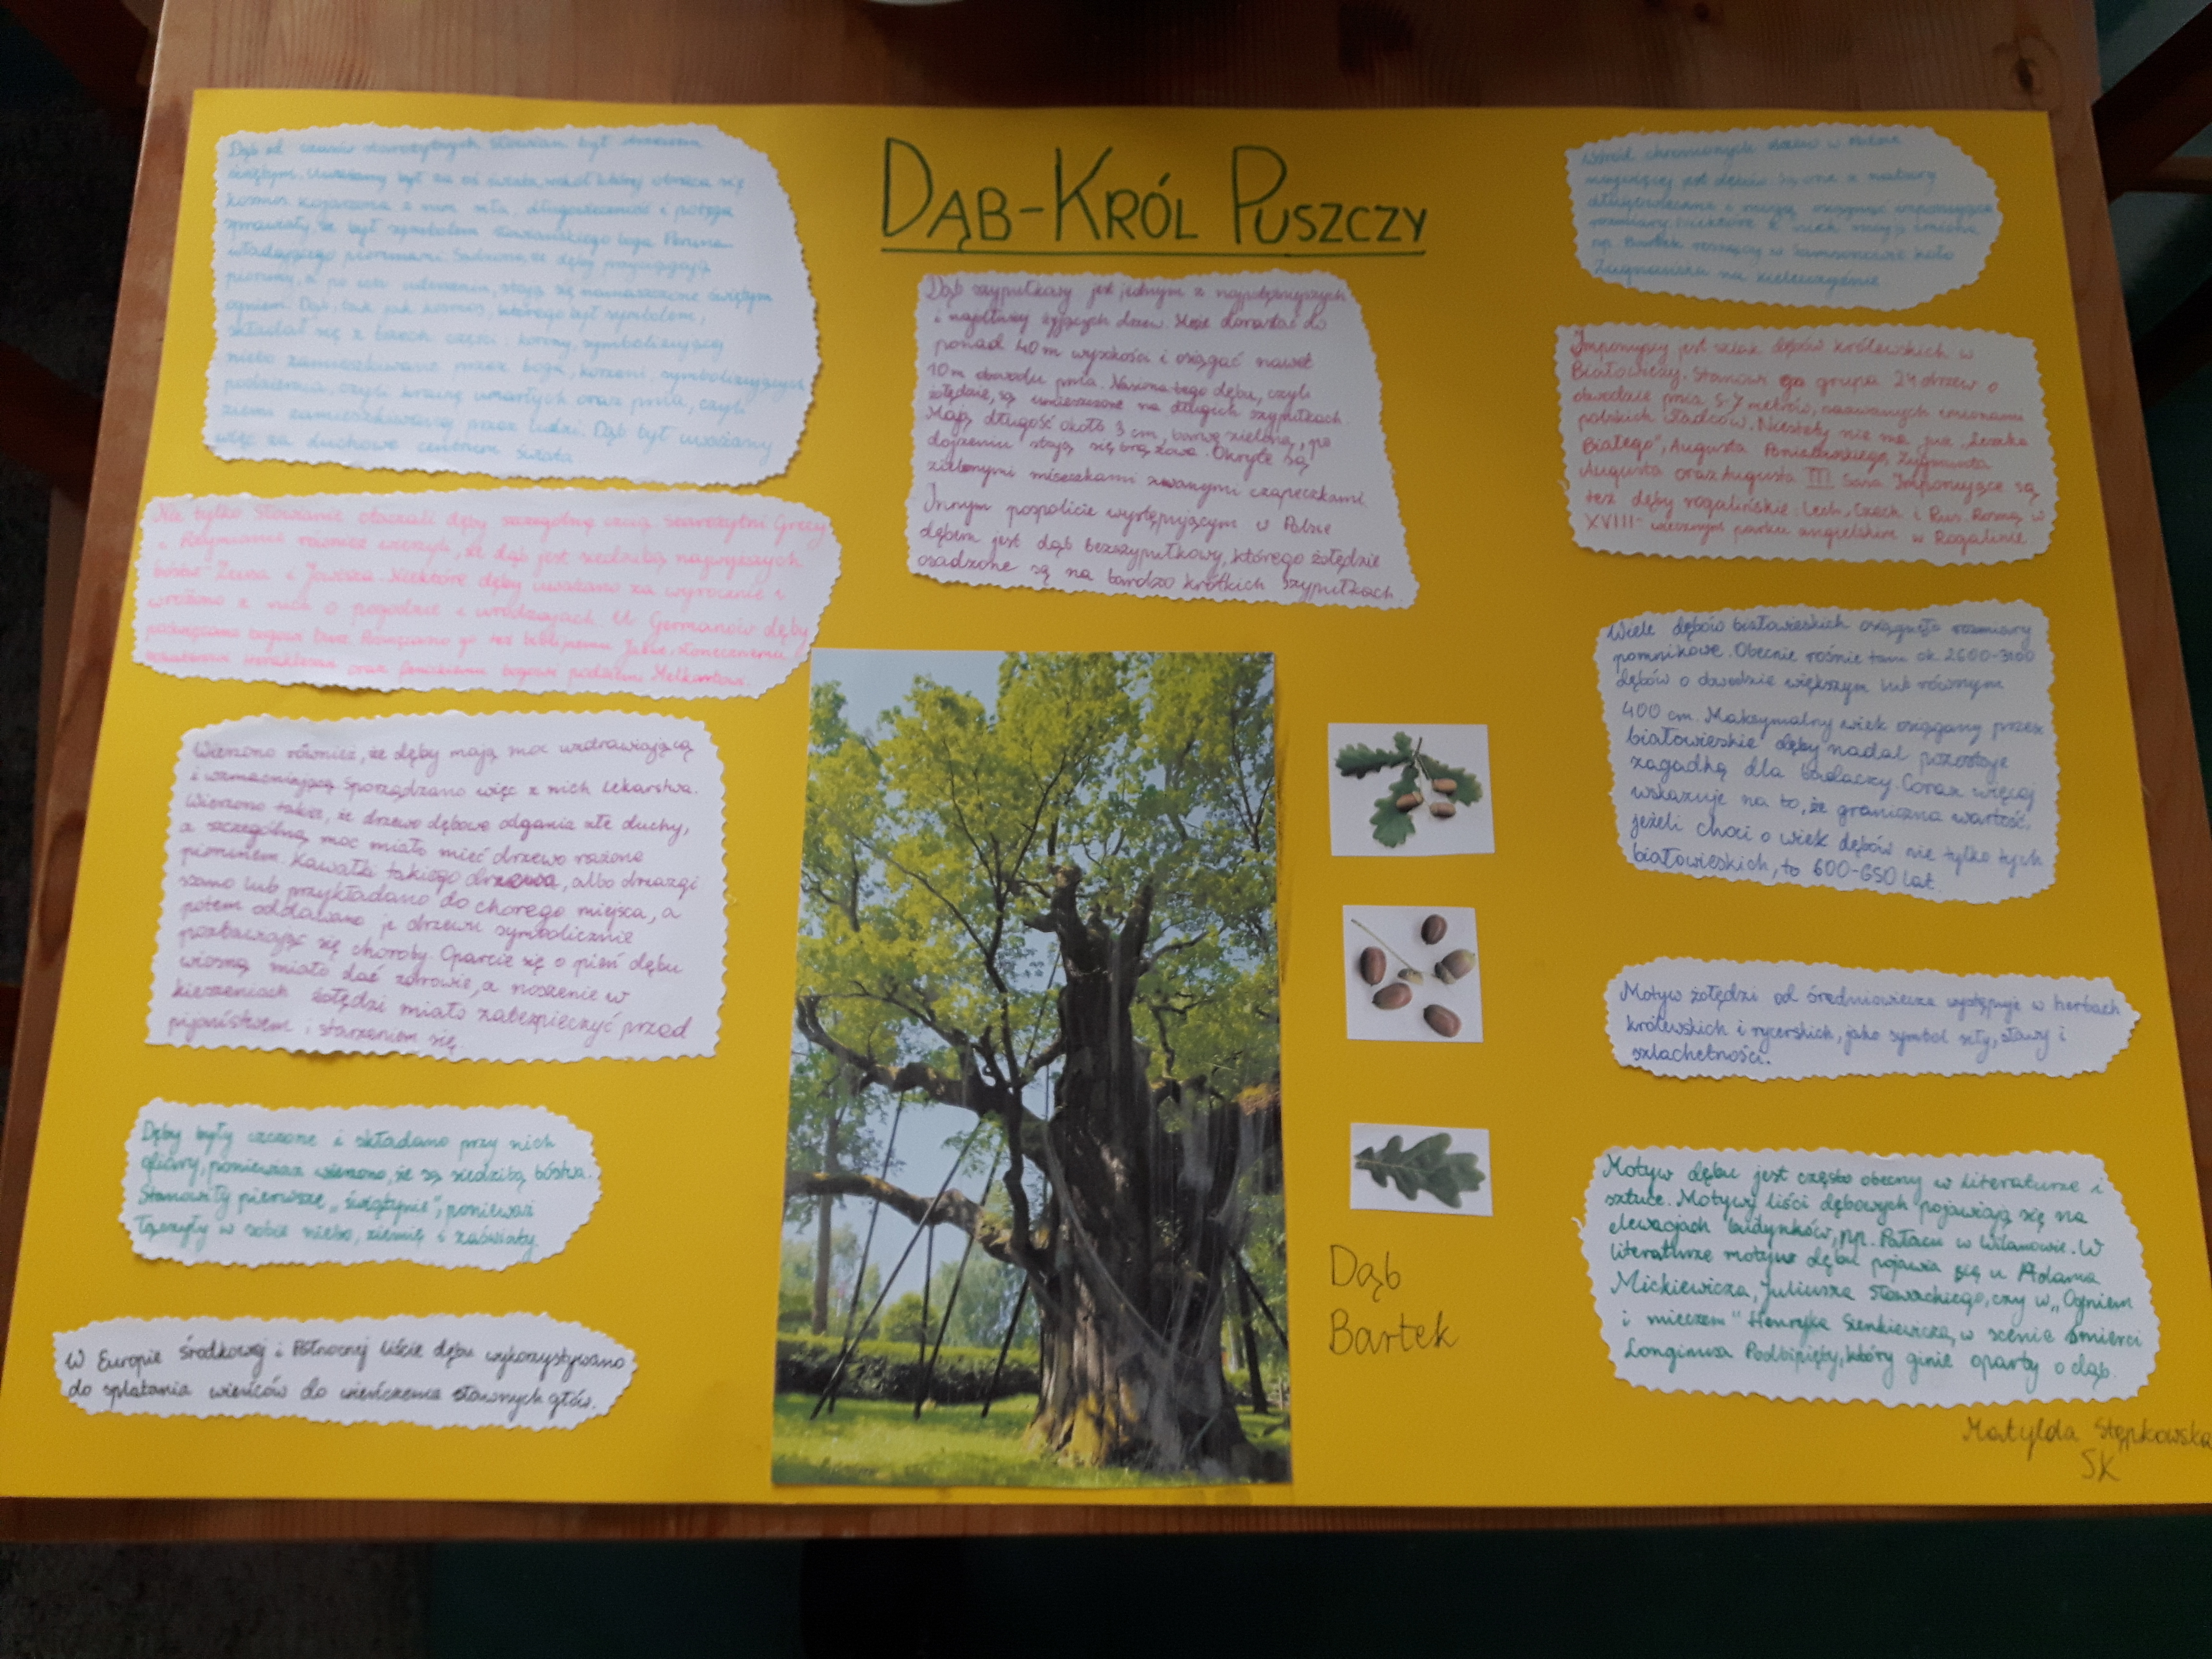 DĄB-KRÓL PUSZCZY
Dąb od czasów starożytnych Słowian był drzewem
świętym. Uważany był za oś świata, wokół której obraca się
kosmos. Kojarzona z nim siła, długowieczność i potęga
sprawiały, że był symbolem słowiańskiego boga Peruna
władającego piorunami. Sądzono, że dęby przyciągają
pioruny, a po ich uderzeniu, stają się naznaczone świętym
ogniem. Dąb, tak jak kosmos, którego był symbolem,
składał się z trzech części: korony, symbolizującej
niebo zamieszkiwane przez boga, korzeni, symbolizujących
podziemia, czyli krainę umarłych oraz pnia, czyli
ziemi zamieszkiwanej przez ludzi. Dąb był uważany
więc za duchowe centrum świata
Nie tylko Słowianie otaczali dęby szczególną czcią. Starożytni Grecy
i Rzymianie również wierzyli, że dąb jest siedzibą najwyższych
bóstw - Zeusa i Jowisza. Niektóre dęby uważano za wyrocznie i
wróżono z nich o pogodzie i urodzajach. U Germanów dęby
poświęcono bogowi burz. Poświęcano go też biblijnemu Jahwe, słonecznemu
Heraklesowi oraz fenickiemu bogowi podziemi Melkartowi.
Wierzono również, że dęby mają moc uzdrawiającą
i wzmacniającą. Sporządzano więc z nich lekarstwa.
Wierzono także, że drzewo dębowe odgania złe duchy,
a szczególną moc miało mieć drzewo rażone
piorunem. Kawałki takiego drzewa, albo drzazgi
ssano lub przykładano do chorego miejsca, a
potem oddawano je drzewu symbolicznie
pozbawiając się choroby. Oparcie się o pień dębu
wiosną miało dać zdrowie, a noszenie w
kieszeniach żołędzi miało zabezpieczyć przed
pijaństwem i starzeniem się.
Dęby były czczone i składano przy nich
ofiary, ponieważ wierzono, że są siedzibą bóstwa.
Stanowiły pierwsze „świątynie”, ponieważ
łączyły w sobie niebo, ziemię i zaświaty.
W Europie Środkowej i Północnej liście dębu wykorzystywano
do splatania wieńców do wieńczenia sławnych głów.
Dąb szypułkowy jest jednym z najpotężniejszych
i najdłużej żyjących drzew. Może dorastać do
ponad 40 m wysokości i osiągać nawet
10 m obwodu pnia. Nasiona tego dębu, czyli
żołędzie, są umieszczone na długich szypułkach.
Mają długość około 3 cm, barwę zieloną, po
dojrzeniu stają się brązowe. Okryte są
zielonymi miseczkami zwanymi czapeczkami.
Innym pospolicie występującym w Polsce
dębem jest dąb bezszypułkowy, którego żołędzie
osadzone są na bardzo krótkich szypułkach.
Dąb
Bartek
Wśród chronionych drzew w Polsce
najwięcej jest dębów. Są one z natury
długowieczne i mogą osiągnąć imponujące
rozmiary. Niektóre z nich mają imiona
np. Bartek rosnący w Samsonowie koło
Zagnańska na Kielecczyźnie
Imponujący jest szlak dębów królewskich w
Białowieży. Stanowi go grupa 24 drzew o
obwodzie pnia 5-7 metrów, nazwanych imionami
polskich władców. Niestety nie ma już „Leszka
Białego”, Augusta Poniatowskiego, Zygmunta
Augusta oraz Augusta III Sasa. Imponujące są
też dęby rogalińskie: Lech, Czech i Rus. Rosną w
XVIII-wiecznym parku angielskim w Rogalinie.
Wiele dębów białowieskich osiągnęło rozmiary
pomnikowe. Obecnie rośnie tam ok. 2600-3100
dębów o obwodzie większym lub równym
400 cm. Maksymalny wiek osiągany przez
białowieskie dęby nadal pozostaje
zagadką dla badaczy. Coraz więcej
wskazuje na to, że graniczna wartość,
jeżeli chodzi o wiek dębów nie tylko tych
białowieskich, to 600-650 lat.
Motyw żołędzi od średniowiecza występuje w herbach
królewskich i rycerskich, jako symbol siły, sławy i
szlachetności.
Motyw dębu jest często obecny w literaturze i
sztuce. Motywy liści dębowych pojawiają się na
elewacjach budynków, np. Pałacu w Wilanowie. W
literaturze motyw dębu pojawia się u Adama
Mickiewicza, Juliusza Słowackiego, czy w „Ogniem
i mieczem” Henryka Sienkiewicza, w scenie śmierci
Longinusa Podbipięty, który ginie oparty o dąb.
Matylda Stępkowska
5K